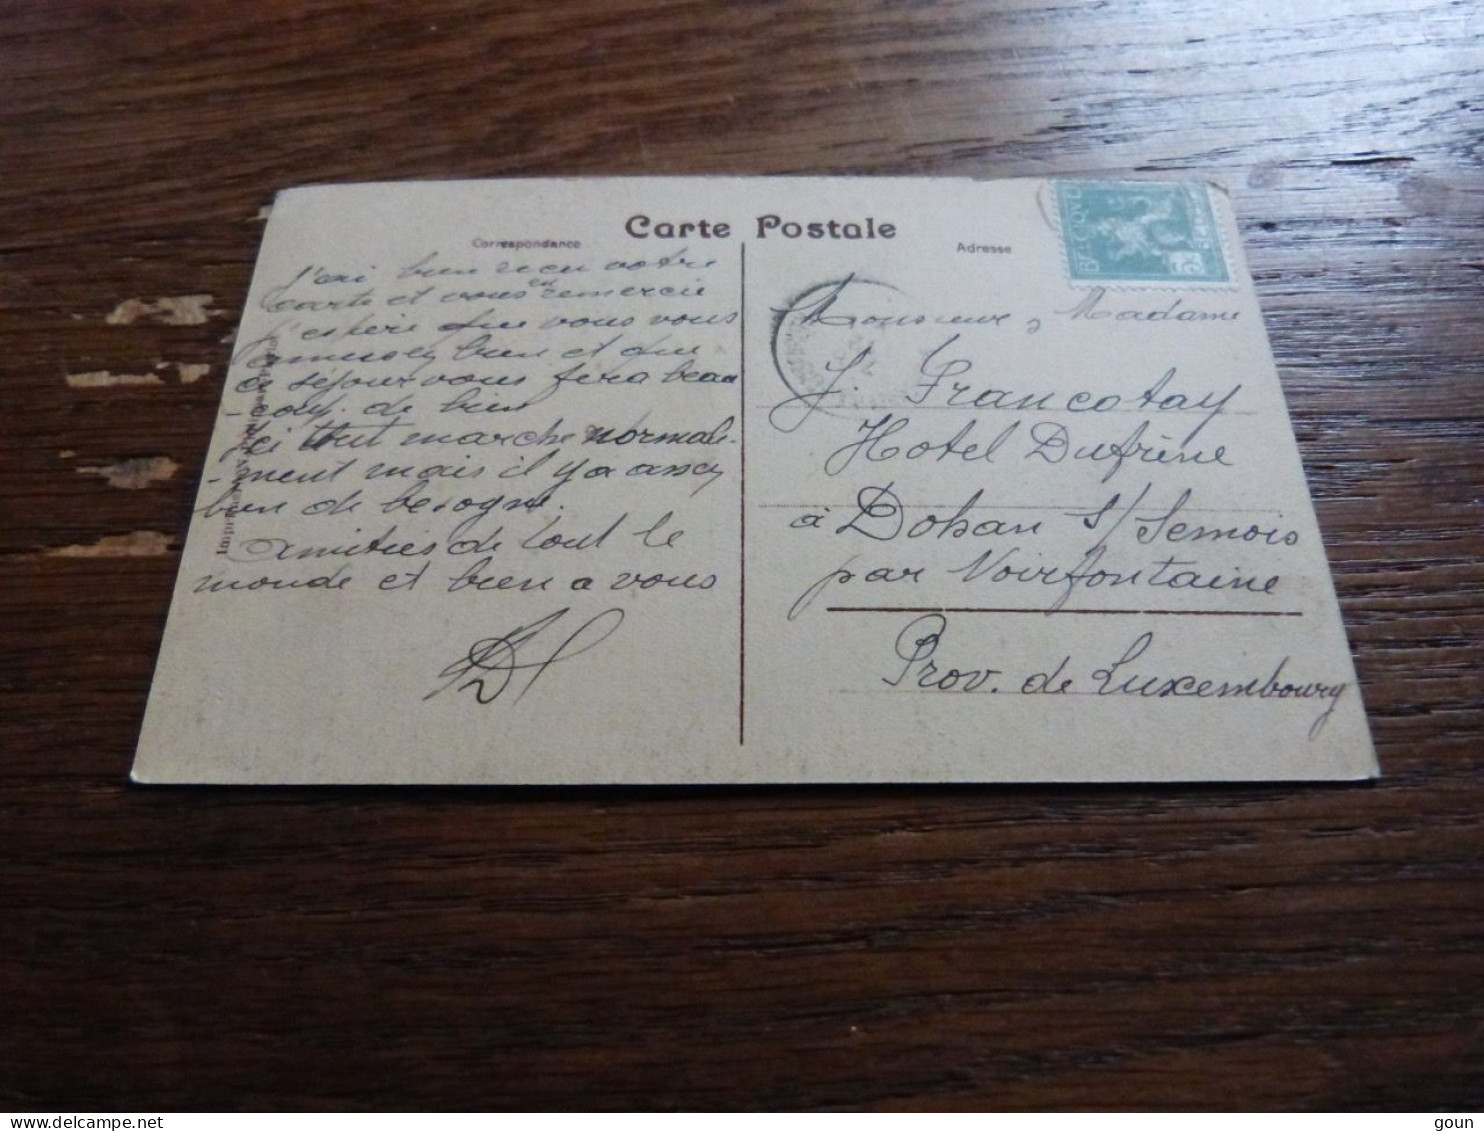 Carte Postale
Correspondance
J'ai bien recu votre
carte et vous en remercie
j'espère que vous vous
amusez bien et que
ce séjour vous fera beau
-coup. de bien
Ici tout marche normale-
-ment mais il y a assez
bien de besogne.
Amitiés de tout le
monde et bien a vous
Adresse
BELGIQUE
5
Monsieur, Madame
J. Francotay
Hotel Dufrène
à Dohan s/Semois
par Noirfontaine
Prov. de Luxembourg
goun